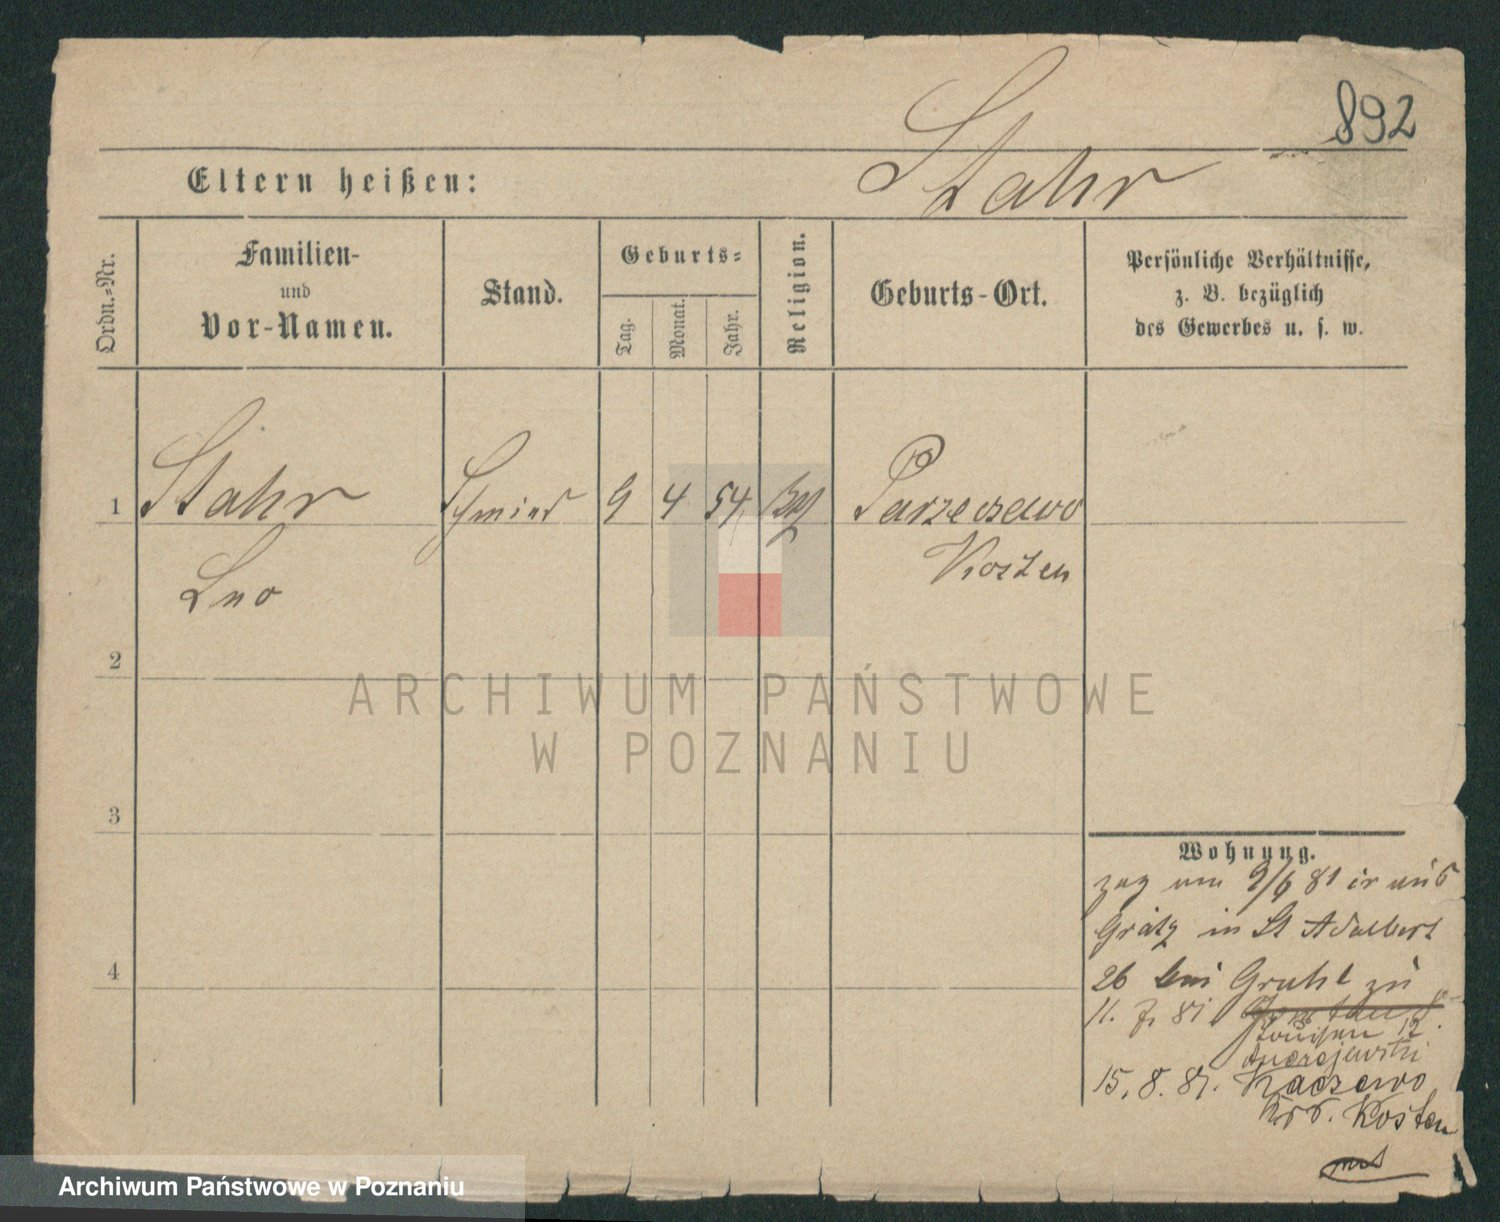 892
Eltern heißen:
Stahr
Ordn.-Nr.
Familien-
und
Vor-Namen.
Stand.
Geburts-
Tag.
Monat.
Jahr.
Religion.
Geburts-Ort.
Persönliche Verhältnisse,
z. B. bezüglich
des Gewerbes u. s. w.
1
Stahr
Schmied
9
4
54
Parzeczewo
Leo
Kosten
2
ARCHIWUM PAŃSTWOWE
W POZNANIU
3
Wohnung.
zog am 9/6 81 er aus
Grätz in St Adalbert
26 bei Gruhl zu
11. 7. 81
12.
Andrzejewski
15. 8. 81. Raczewo
Krs. Kosten
4
Archiwum Państwowe w Poznaniu